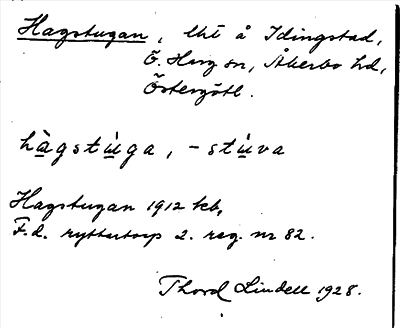 Hagstugan, lht å Idingstad,
Ö. Harg sn, Åkerbo hd,
Östergötl.
hàgstù̱ga, -stù̱va
Hagstugan 1912 kb,
F.d. ryttartorp 2. reg. nr 82.
Thord Lindell 1928.